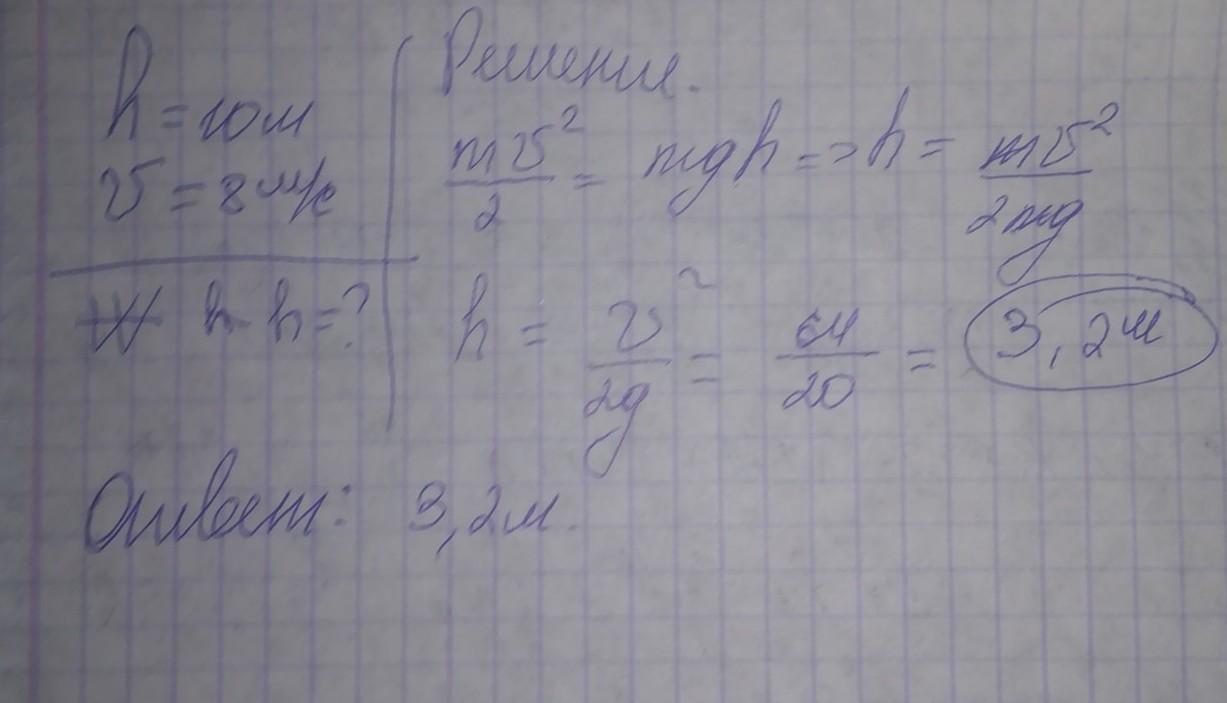 h = 10 м
v = 8 м/с
h = ?
Решение.
mv²/2 = mgh => h = mv²/2mg
h = v²/2g = 64/20 = 3,2 м
Ответ: 3,2 м.